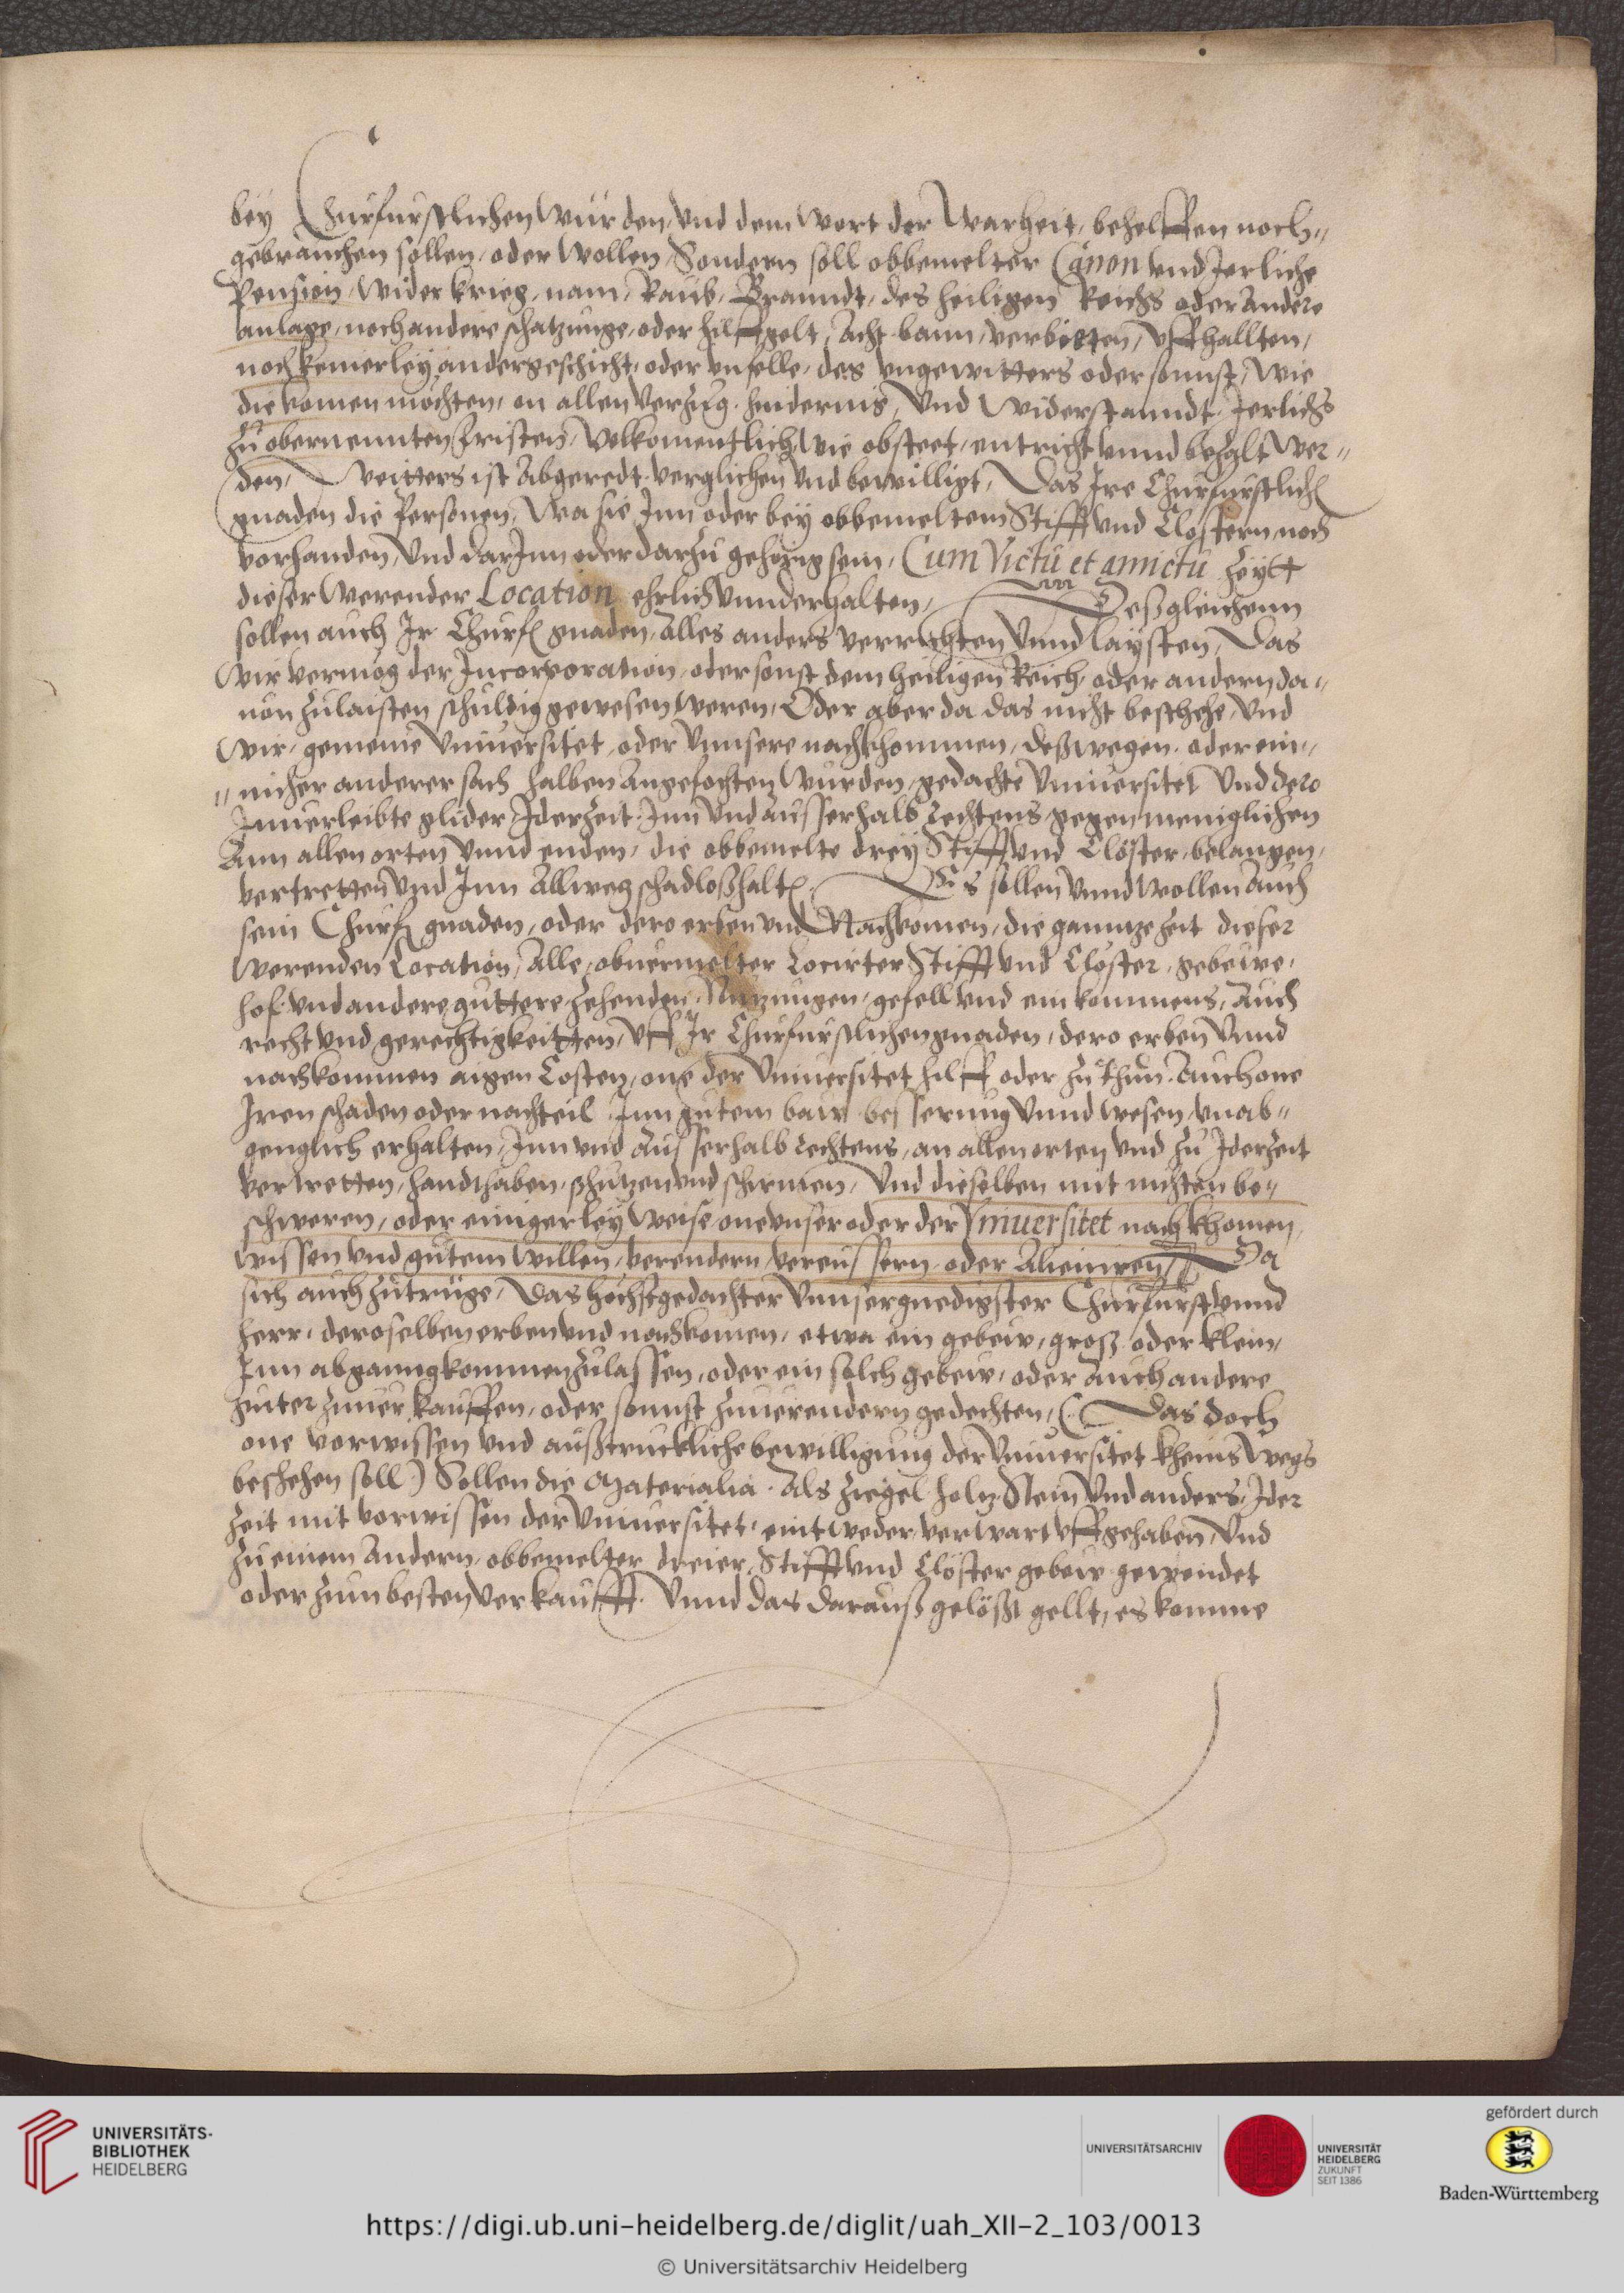 bey Churfurstlichen Wurden, vnd dem Wort der Warheit, behelffen noch"
gebrauchen sollen, oder Wollen, Sondern soll obbemelter Canon vnd Jerliche
Pension, Wider krieg, nam, Raub, Branndt, des heiligen Reichs oder Andere
anlage, noch andere schatzunge, oder hilffgelt, Acht, bann, verbieten, vffhallten,
noch keinerley andergeschicht, oder vnfelle, des vngewitters oder sonnst, Wie
die komen möchten, on allen Verzug, hindernis, Vnd Widerstanndt, Jerlichs
zu obernennten fristen, Volkomentlich, Wie obsteet, entricht vnnd bezalt Wer"
den, Weitters ist Abgeredt, verglichen Vnd bewilligt, Das Ire Churfurstlich
gnaden die Personen, Wa sie Inn oder bey obbemeltem Stifft Vnd Clostern, noch
vorhanden, Vnd darInn oder darzu gehörig sein, Cum Victu et amictu Zeytt
dieser Werender Location ehrlich Vnnderhalten, Deßgleichenn
sollen auch Ir Churf gnaden, Alles anders verrichten Vnnd laysten, Das
Wir vermög der Incorporation, oder sonst dem heiligen Reich, oder andern da"
uon zulaisten schuldig gewesen Weren, Oder aber da das nicht beschehe, Vnd
Wir, gemeine Vniuersitet, oder Vnnsere nachkhommen, deßwegen, oder ein"
"nicher anderer sach halben Angefochten Wurden, gedachte Vniuersitet Vnd dero
Innuerleibte glider Iderzeit, Inn Vnd Ausserhalb Rechtens, gegen meniglichen
Ann allen orten Vnnd enden, die obbemelte drey Stifft Vnd Clöster, belangen,
vertretten Vnd Inn Allweg schadloßhalt, Es sollen Vnnd Wollen Auch
sein Churf gnaden, oder dero erben Vnd Nachkomen, die ganntze zeit dieser
Werenden Location, Alle, obuermelter Locirter Stifft Vnd Clöster, gebewe,
hof, Vnd andere guttere, Zehenden, Nutzungen, gefell Vnd einkommens, Auch
recht Vnd gerechtigkeitten, Vff Ir Churfurstlichen gnaden, dero erben Vnnd
nachkommen aigen Costen, one der Vniuersitet hilff oder zuthun, Auch one
Iren schaden oder nachteil, Inn gutem baw, besserung Vnnd Wesen, vnab"
genglich erhalten, Inn Vnd Ausserhalb Rechtens, an allen orten Vnd zu Iderzeit
vertretten, handthaben, schutzen Vnd schirmen, Vnd dieselben mit nichten be"
schweren, oder einigerley Weise, one Vnser oder der Vniuersitet nachkhomen,
Wissen Vnd gutem Willen, verendern, vereussern, oder Alieniren, Da
sich auch zutruge, Das höchstgedachter Vnnser gnedigster Churfurst Vnnd
herr, deroselben erben Vnd nachkomen, etwa ein gebew, groß oder klein,
Inn abganng kommen zulassen, oder ein solch gebew, oder Auch andere
guter zuuerkauffen, oder sonnst zuuerendern gedechten, (Das doch
one vorwissen Vnd außtruckliche bewilligung der Vniuersitet kheins Wegs
beschehen soll) Sollen die Materialia, Als Ziegel, holtz, Stein Vnd anders, Ider
Zeit mit vorwissen der Vniuersitet, eintweder verwart Vffgehaben, Vnd
Zu einem Andern, obbemelter dreier, Stifft Vnd Clöster gebew gewendet
oder Zum besten Verkaufft. Vnnd das darauß gelößt gellt, es komme
UNIVERSITÄTS-
BIBLIOTHEK
HEIDELBERG
UNIVERSITÄTSARCHIV
UNIVERSITÄT
HEIDELBERG
ZUKUNFT
SEIT 1386
gefördert durch
Baden-Württemberg
https://digi.ub.uni-heidelberg.de/diglit/uah_XII-2_103/0013
© Universitätsarchiv Heidelberg